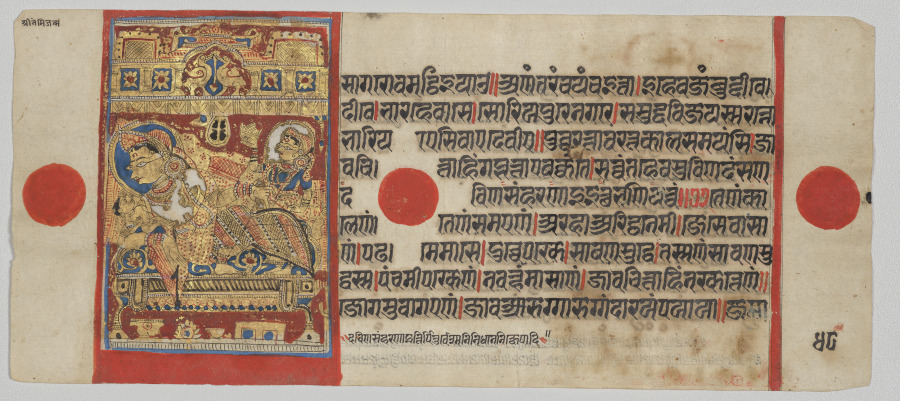 श्रीनेमिजन्म
सागरोवमट्ठिइयाओ॥ अणंतरं चयं चइत्ता। इहेव जंबुद्दीवे
दीवे। भारहे वासे। सोरियपुरे नगरे। समुद्दविजयस्स रन्नो
भारिया ए सिवाए देवीए॥ पुव्वरत्तावरत्तकालसमयंसि। जा
व चि त्ताहिं गब्भत्ताए वक्कंते। सव्वं तहेव सुविणदंसण
द विणसंहरणाइ इत्थ भाणियव्वं॥ तेणं का
लेणं। तेणं समएणं। अरहा अरिट्ठनेमी। जे से वासा
णं। पढमे मासे। दुच्चे पक्खे। सावणसुद्धे। तस्स णं सावणसु
द्धस्स। पंचमीपक्खेणं। नवण्हं मासाणं। जाव चित्ताहिं नक्खत्तेणं॥
जोगमुवागएणं। जाव आरोग्गा आरोग्गं दारयं पयाया॥ जम्म
४८